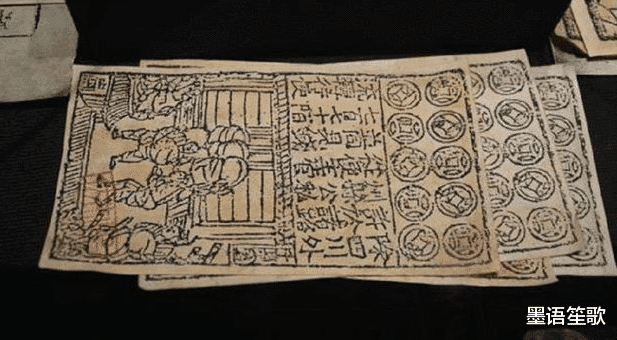 除四川外
許於諸路
州縣公私
從便主管
並同見錢
七百七十陌
流轉行使
墨语笙歌